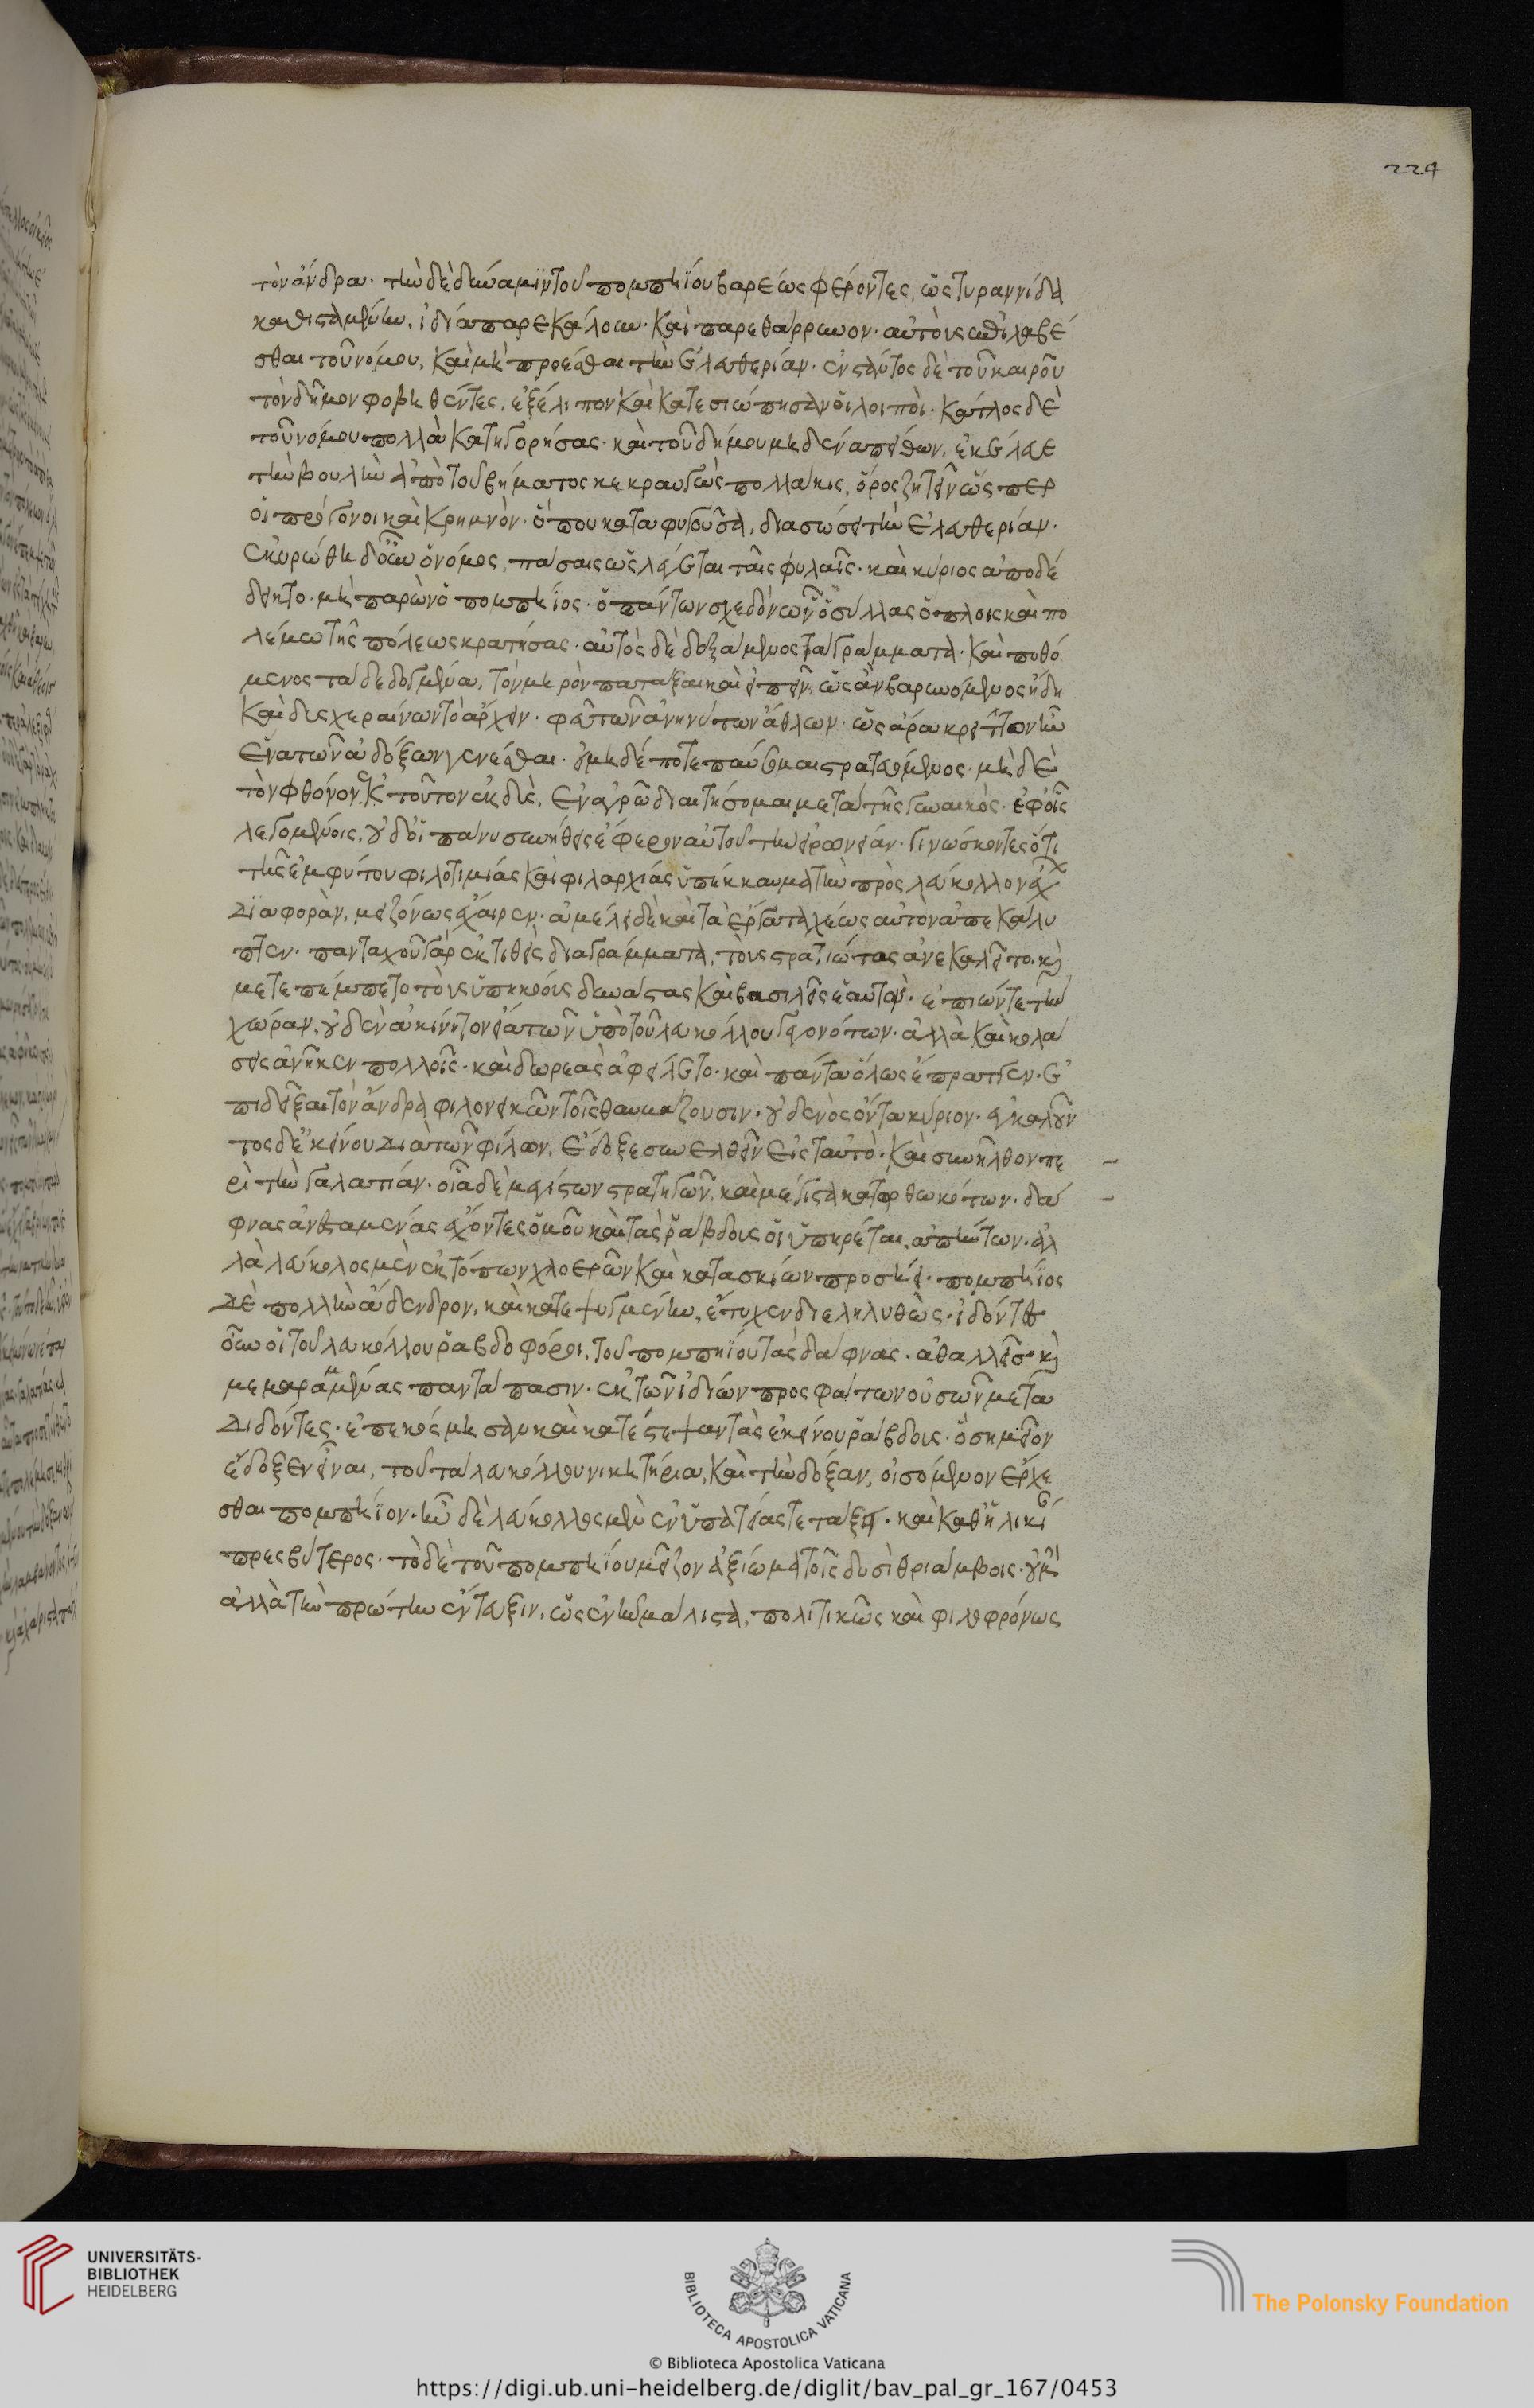 224
τὸν ἄνδρα· τὴν δὲ δύναμιν τοῦ πομπηίου βαρέως φέροντες, ὡς τυραννίδα
καθισταμένην, ἰδία παρεκάλουν· καὶ παρεθάρρυνον· αὐτοὺς ἐπιλαβέ
σθαι τοῦ νόμου, καὶ μὴ προέσθαι τὴν ἐλευθερίαν· ἐνστάντος δὲ τοῦ καιροῦ
τὸν δῆμον φοβηθέντες, ἐξέλιπον καὶ κατεσιώπησαν οἱ λοιποὶ· κάτλος δὲ
τοῦ νόμου πολλὰ κατηγορήσας· καὶ τοῦ δήμου μηδένα πείθων, ἐκέλευε
τὴν βουλὴν ἀπὸ τοῦ βήματος κεκραγὼς πολλάκις, ὄρος ζητεῖν ὥσπερ
οἱ πρόγονοι καὶ κρημνὸν· ὅπου καταφυγοῦσα, διασώσει τὴν ἐλευθερίαν·
ἐκυρώθη δ' οὖν ὁ νόμος, πάσαις ὡς λέγεται ταῖς φυλαῖς· καὶ κύριος ἀποδέ
δεικτο· μὴ παρὼν ὁ πομπήιος· ἁπάντων σχεδὸν ὧν ὁ σύλλας ὅπλοις καὶ πο
λέμω τῆς πόλεως κρατήσας· αὐτὸς δὲ δεξάμενος τὰ γράμματα· καὶ πυθό
μενος τὰ δεδογμένα, τὸν μηρὸν πατάξαι καὶ εἰπεῖν, ὡς ἂν βαρυνόμενος ἤδη
καὶ δυσχεραίνων τὸ ἄρχειν· φεῦ τῶν ἀνηνύτων ἄθλων· ὡς ἄρα κρεῖττον ἦν
ἕνα τῶν ἀδόξων γενέσθαι· εἰ μηδέποτε παύσομαι στρατευόμενος· μὴ δὲ
τὸν φθόνον τοῦτον ἐκδὺς, ἐν ἀγρῷ διαιτήσομαι μετὰ τῆς γυναικὸς· ἐφ' οἷς
λεγομένοις, οὐδ' οἱ πάνυ συνήθεις ἔφερον αὐτοῦ τὴν εἰρωνείαν· γινώσκοντες ὅτι
τῆς ἐμφύτου φιλοτιμίας καὶ φιλαρχίας ὑπέκκαυμα τὴν πρὸς λεύκολλον ἔχων
διαφορὰν, μειζόνως ἔχαιρεν· ἀμέλει δὲ καὶ τὰ ἔργα ταχέως αὐτὸν ἀπεκάλυ
πτεν· πανταχοῦ γὰρ ἐκτιθεὶς διαγράμματα, τοὺς στρατιώτας ἀνεκαλεῖτο. καὶ
μετεπέμπετο τοὺς ὑπηκόους δυνάστας καὶ βασιλεῖς ὡς ἑαυτόν· ἐπιών τε τὴν
χώραν, οὐδὲν ἀκίνητον εἴα τῶν ὑπὸ τοῦ λευκόλλου γεγονότων· ἀλλὰ καὶ κολά
σεις ἀνῆκεν πολλοῖς· καὶ δωρεὰς ἀφείλετο· καὶ πάντα ὅλως ἔπραττεν· ἐ
πιδεῖξαι τὸν ἄνδρα φιλονεικῶν τοῖς θαυμάζουσιν· οὐδενὸς ὄντα κύριον· ἐγκαλοῦν
τος δ' ἐκείνου διὰ τῶν φίλων, ἔδοξε συνελθεῖν εἰς ταυτὸ· καὶ συνῆλθον πε
ρὶ τὴν γαλατίαν· οἷα δὲ μεγίστων στρατηγῶν, καὶ μέγιστα κατωρθωκότων· δά
φνας ἀνθαμένας ἔχοντες ὁμοῦ καὶ τὰς ῥάβδους οἱ ὑπηρέται, ἀπήντων· ἀλ
λὰ λεύκολος μὲν ἐκ τόπων χλοερῶν καὶ κατασκίων προσήει· πομπήιος
δὲ πολλὴν ἄδενδρον, καὶ κατεψυγμένην, ἔτυχεν διεληλυθὼς· ἰδόντες
οὖν οἱ τοῦ λευκόλλου ῥαβδοφόροι, τοῦ πομπηίου τὰς δάφνας· ἀθαλλεῖς καὶ
μεμαραμμένας παντάπασιν· ἐκ τῶν ἰδίων προσφάτων οὐσῶν μετα
διδόντες· ἐπεκόσμησαν καὶ κατέστεψαν τὰς ἐκείνου ῥάβδους· ὃ σημεῖον
ἔδοξεν εἶναι, τοῦ τὰ λευκόλλου νικητήρια, καὶ τὴν δόξαν, οἰσόμενον ἔρχε
σθαι πομπήιον· ἦν δὲ λεύκολλος μὲν ἐν ὑπατείας τε τάξει· καὶ καθ' ἡλικί
πρεσβύτερος· τὸ δὲ τοῦ πομπηίου μεῖζον ἀξίωμα τοῖς δυσὶ θριάμβοις· οὐ μὴν
ἀλλὰ τὴν πρώτην ἔντευξιν, ὡς ἐνῆν μάλιστα, πολιτικῶς καὶ φιλοφρόνως
UNIVERSITÄTS-
BIBLIOTHEK
HEIDELBERG
BIBLIOTECA APOSTOLICA VATICANA
© Biblioteca Apostolica Vaticana
The Polonsky Foundation
https://digi.ub.uni-heidelberg.de/diglit/bav_pal_gr_167/0453